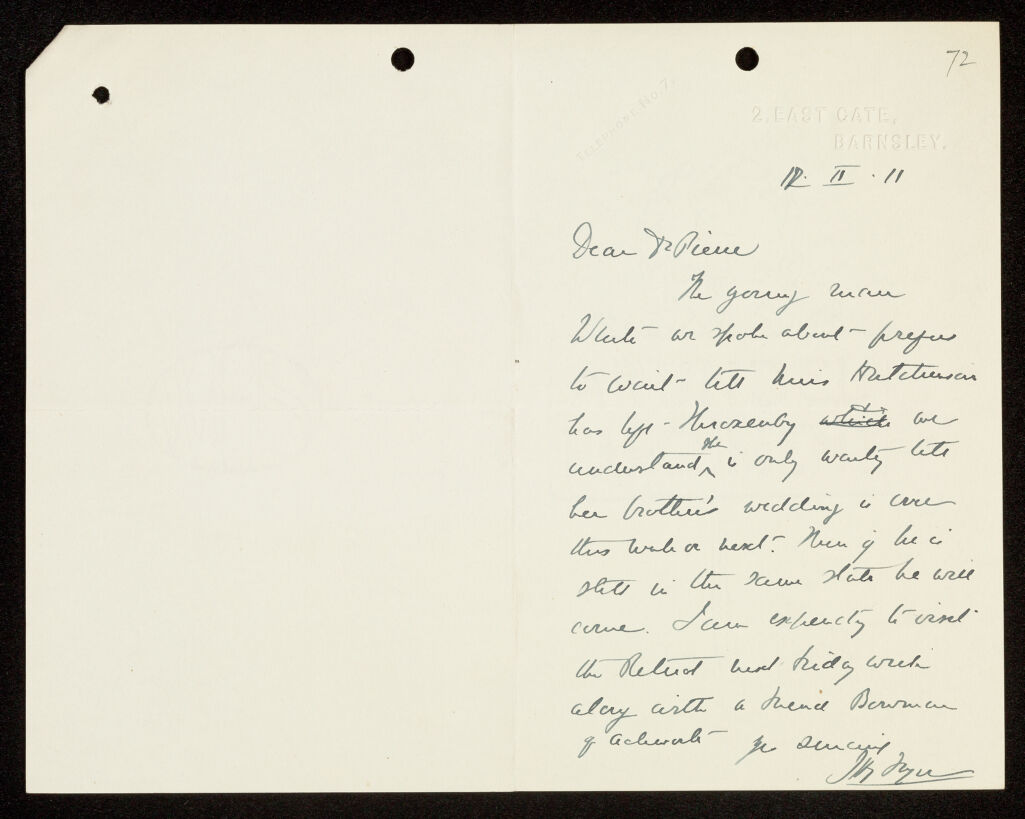 72
TELEPHONE NO. 7.
2, EAST GATE,
BARNSLEY.
12. II. 11
Dear Dr Pierce
The young man
White we spoke about - prefers
to wait - till Miss Hutchinson
has left - Throxenby which we
understand she is only waiting till
her brother's wedding is over
this week or next. Then if he is
still in the same state he will
come. I am expecting to visit
the Retreat next Friday week
along with a friend Bowman
of Ackworth yrs sincerely